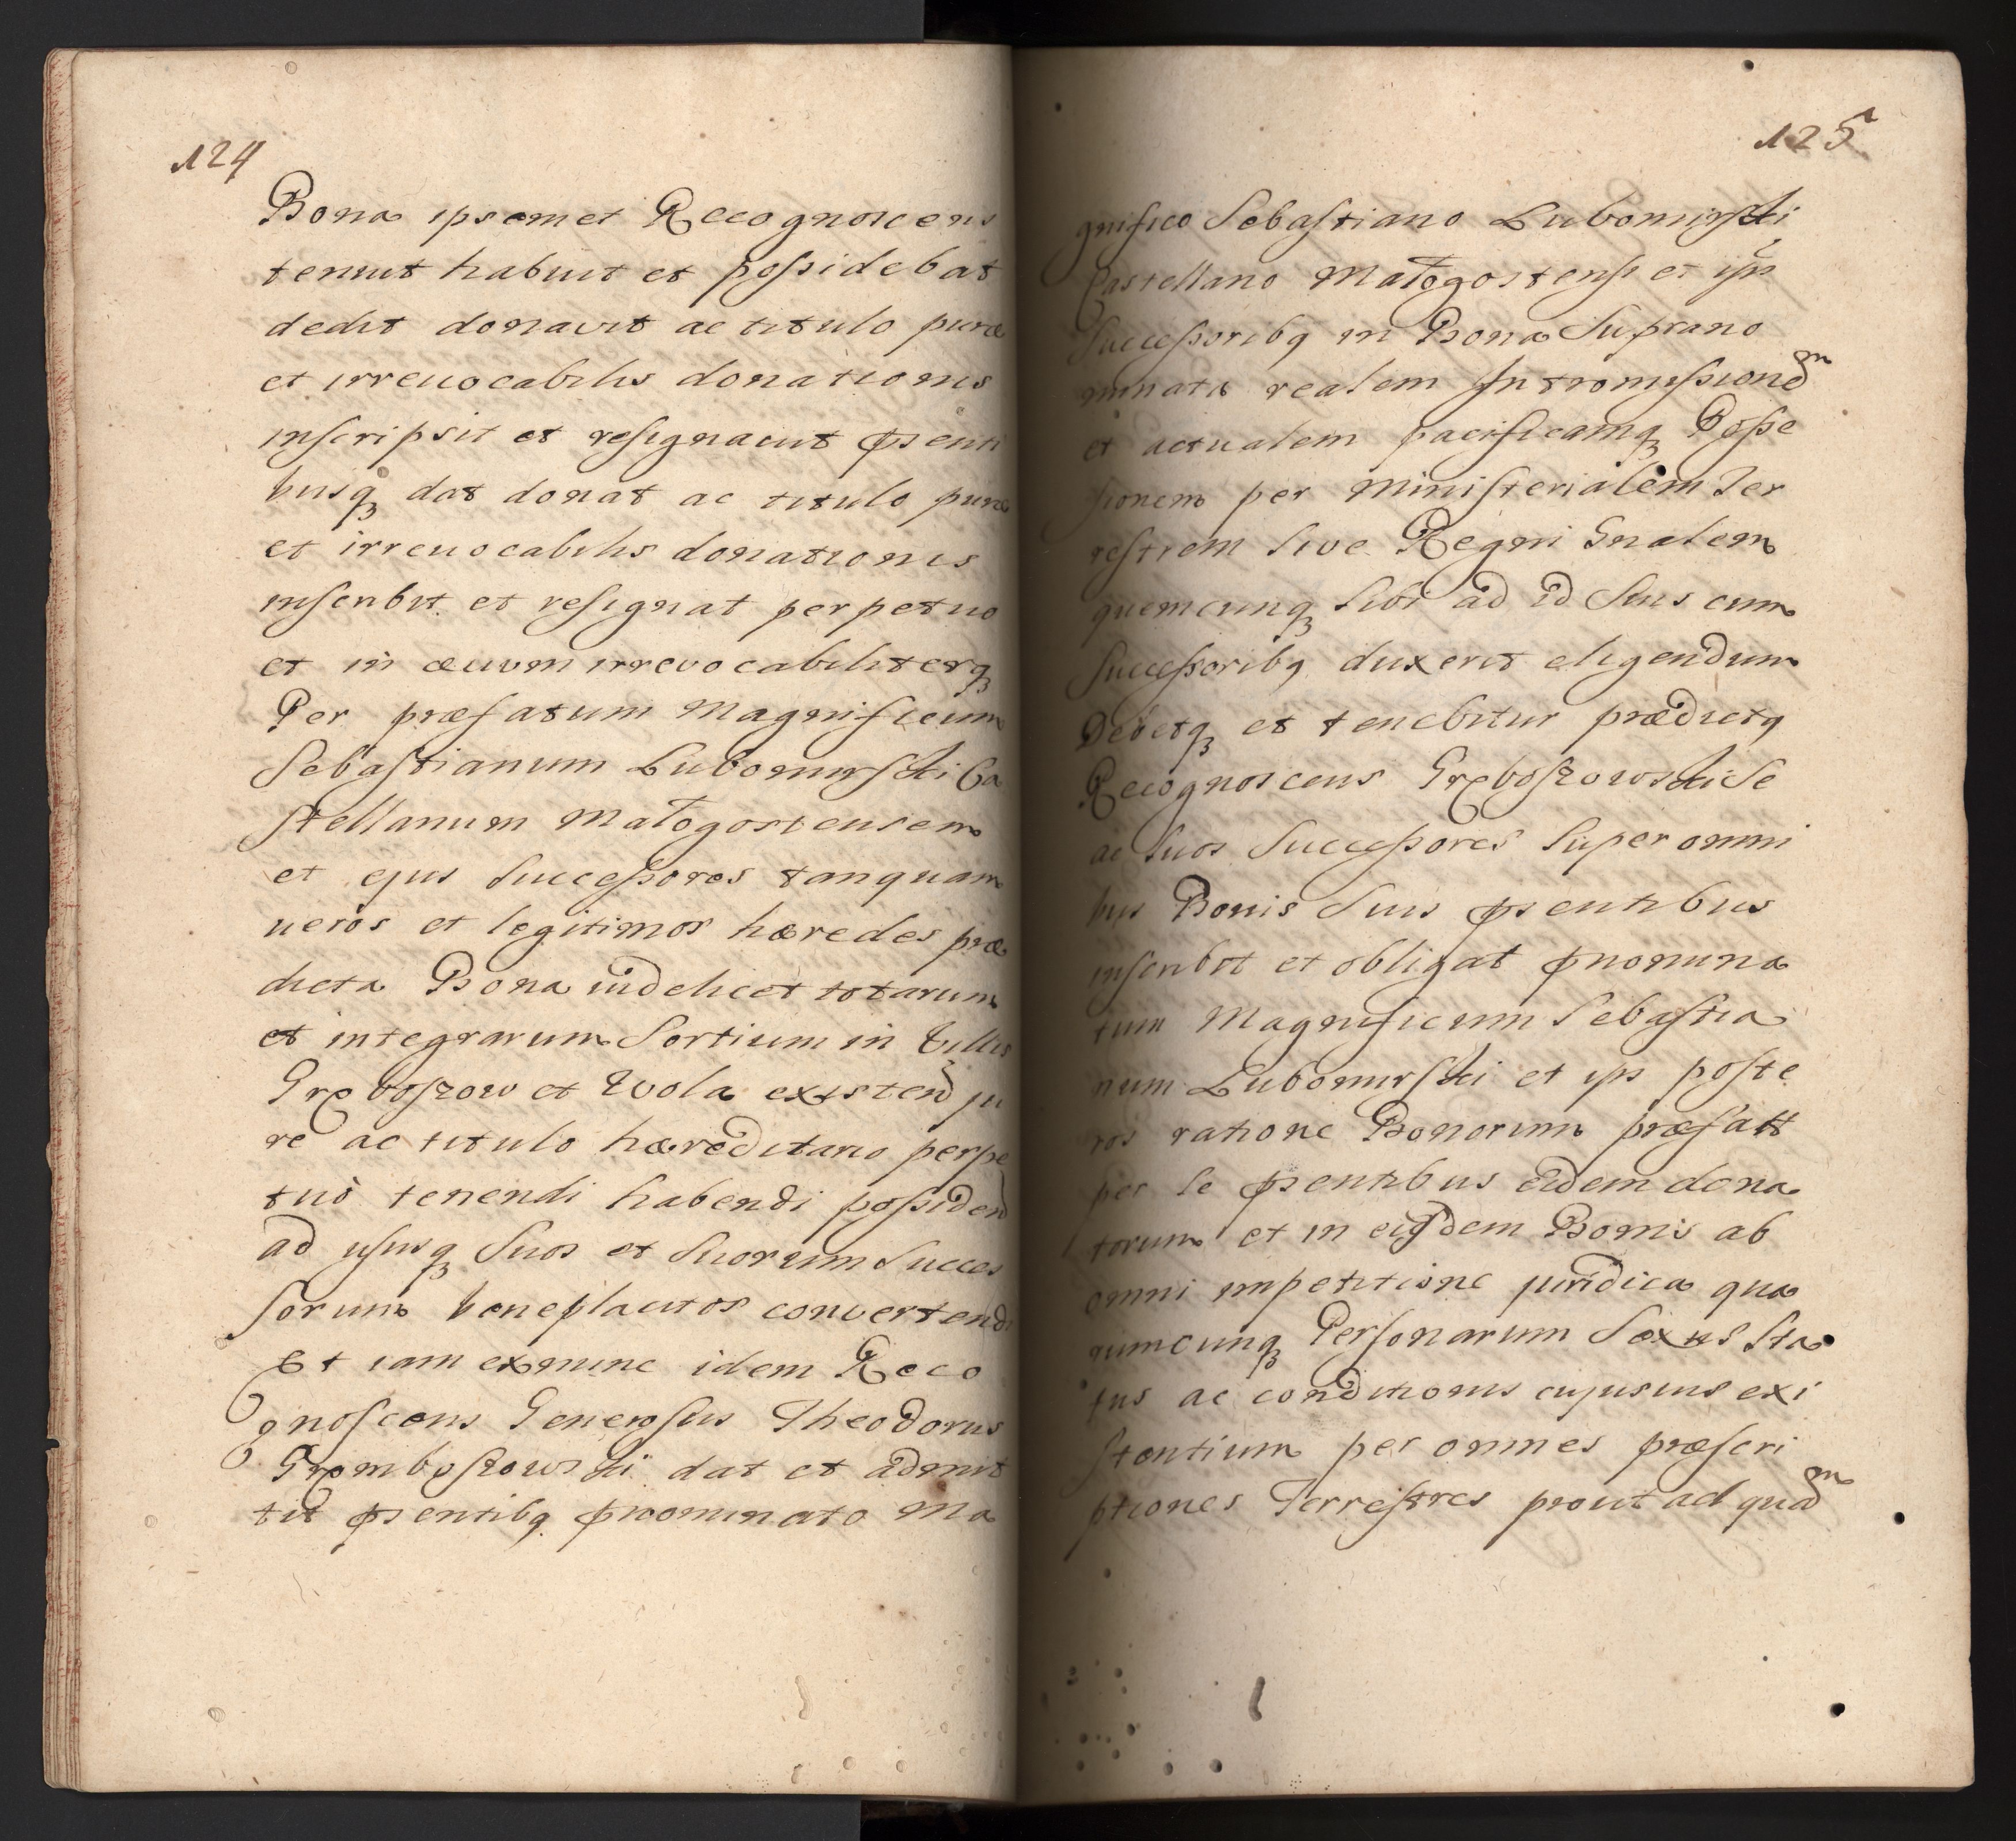 124
Bona ipsemet Recognoscens
tenuit habuit et possidebat
dedit donavit ac titulo puræ
et irreuocabilis donationis
inscripsit et resignauit pṡenti
busq dat donat ac titulo puræ
et irreuocabilis donationis
inscribit et resignat perpetuo
et in æuum irrevocabiliterq
Per præfatum Magnificum
Sebastianum Lubomirski Ca
stellanum Małogostensem
et ejus Successores tanquam
ueros et legitimos hæredes præ
dicta Bona uidelicet totarum
et integrarum Sortium in Villis
Gręboszow et Wola existend ju
re ac titulo hæreditario perpe
tuò tenendi habendi possidend
ad ususq Suos et Suorum Succes
sorum beneplacitos convertendi
Et iam exnunc idem Reco
gnoscens Generosus Theodorus
Gręmboszowski dat et admit
tit pṡentibq pnominato Ma
125
gnifico Sebastiano Lubomirski
Castellano Małogostensi et ips
Successoribq in Bona Suprano
minata realem Intromissionem
et actualem pacificamq Posse
sionem per Ministerialem Ter
restrem Sive Regni Gnalem
quemcunq Sibi ad id Suis cum
Successoribq duxerit eligendum
Debetq et tenebitur prædictq
Recognoscens Gręboszowski Se
ac Suos Successores Super omni
bus Bonis Suis pṡentibus
inscribit et obligat pnomina
tum Magnificum Sebastia
num Lubomirski et ips poste
ros ratione Bonorum præfatt
per Se pṡentibus eidem dona
torum et in eisdem Bonis ab
omni impetitione juridica qua
rumcunq Personarum Sexus Sta
tus ac conditionis cujusuis exi
stentium per omnes præscri
ptiones Terrestres prout ad quam